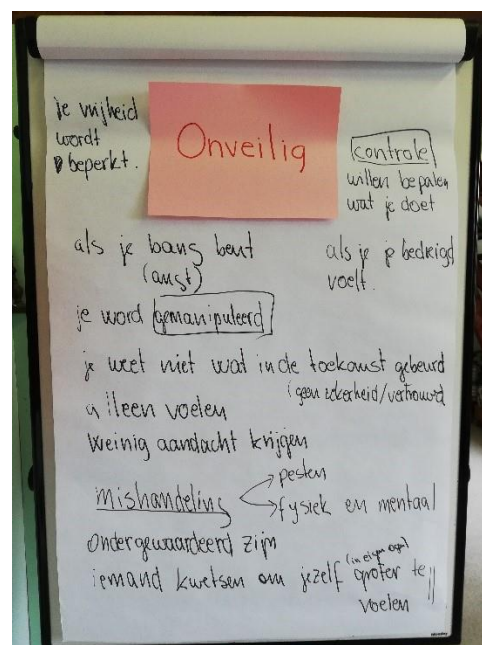 je vrijheid
wordt
beperkt.
Onveilig
controle
willen bepalen
wat je doet
als je bang bent
(angst)
als je je bedreigd
voelt.
je word gemanipuleerd
je weet niet wat in de toekomst gebeurd
(geen zekerheid/vertrouwd
alleen voelen
Weinig aandacht krijgen
mishandeling → pesten
→ fysiek en mentaal
Ondergewaardeerd zijn
iemand kwetsen om jezelf (in eigen ogen) groter te
voelen